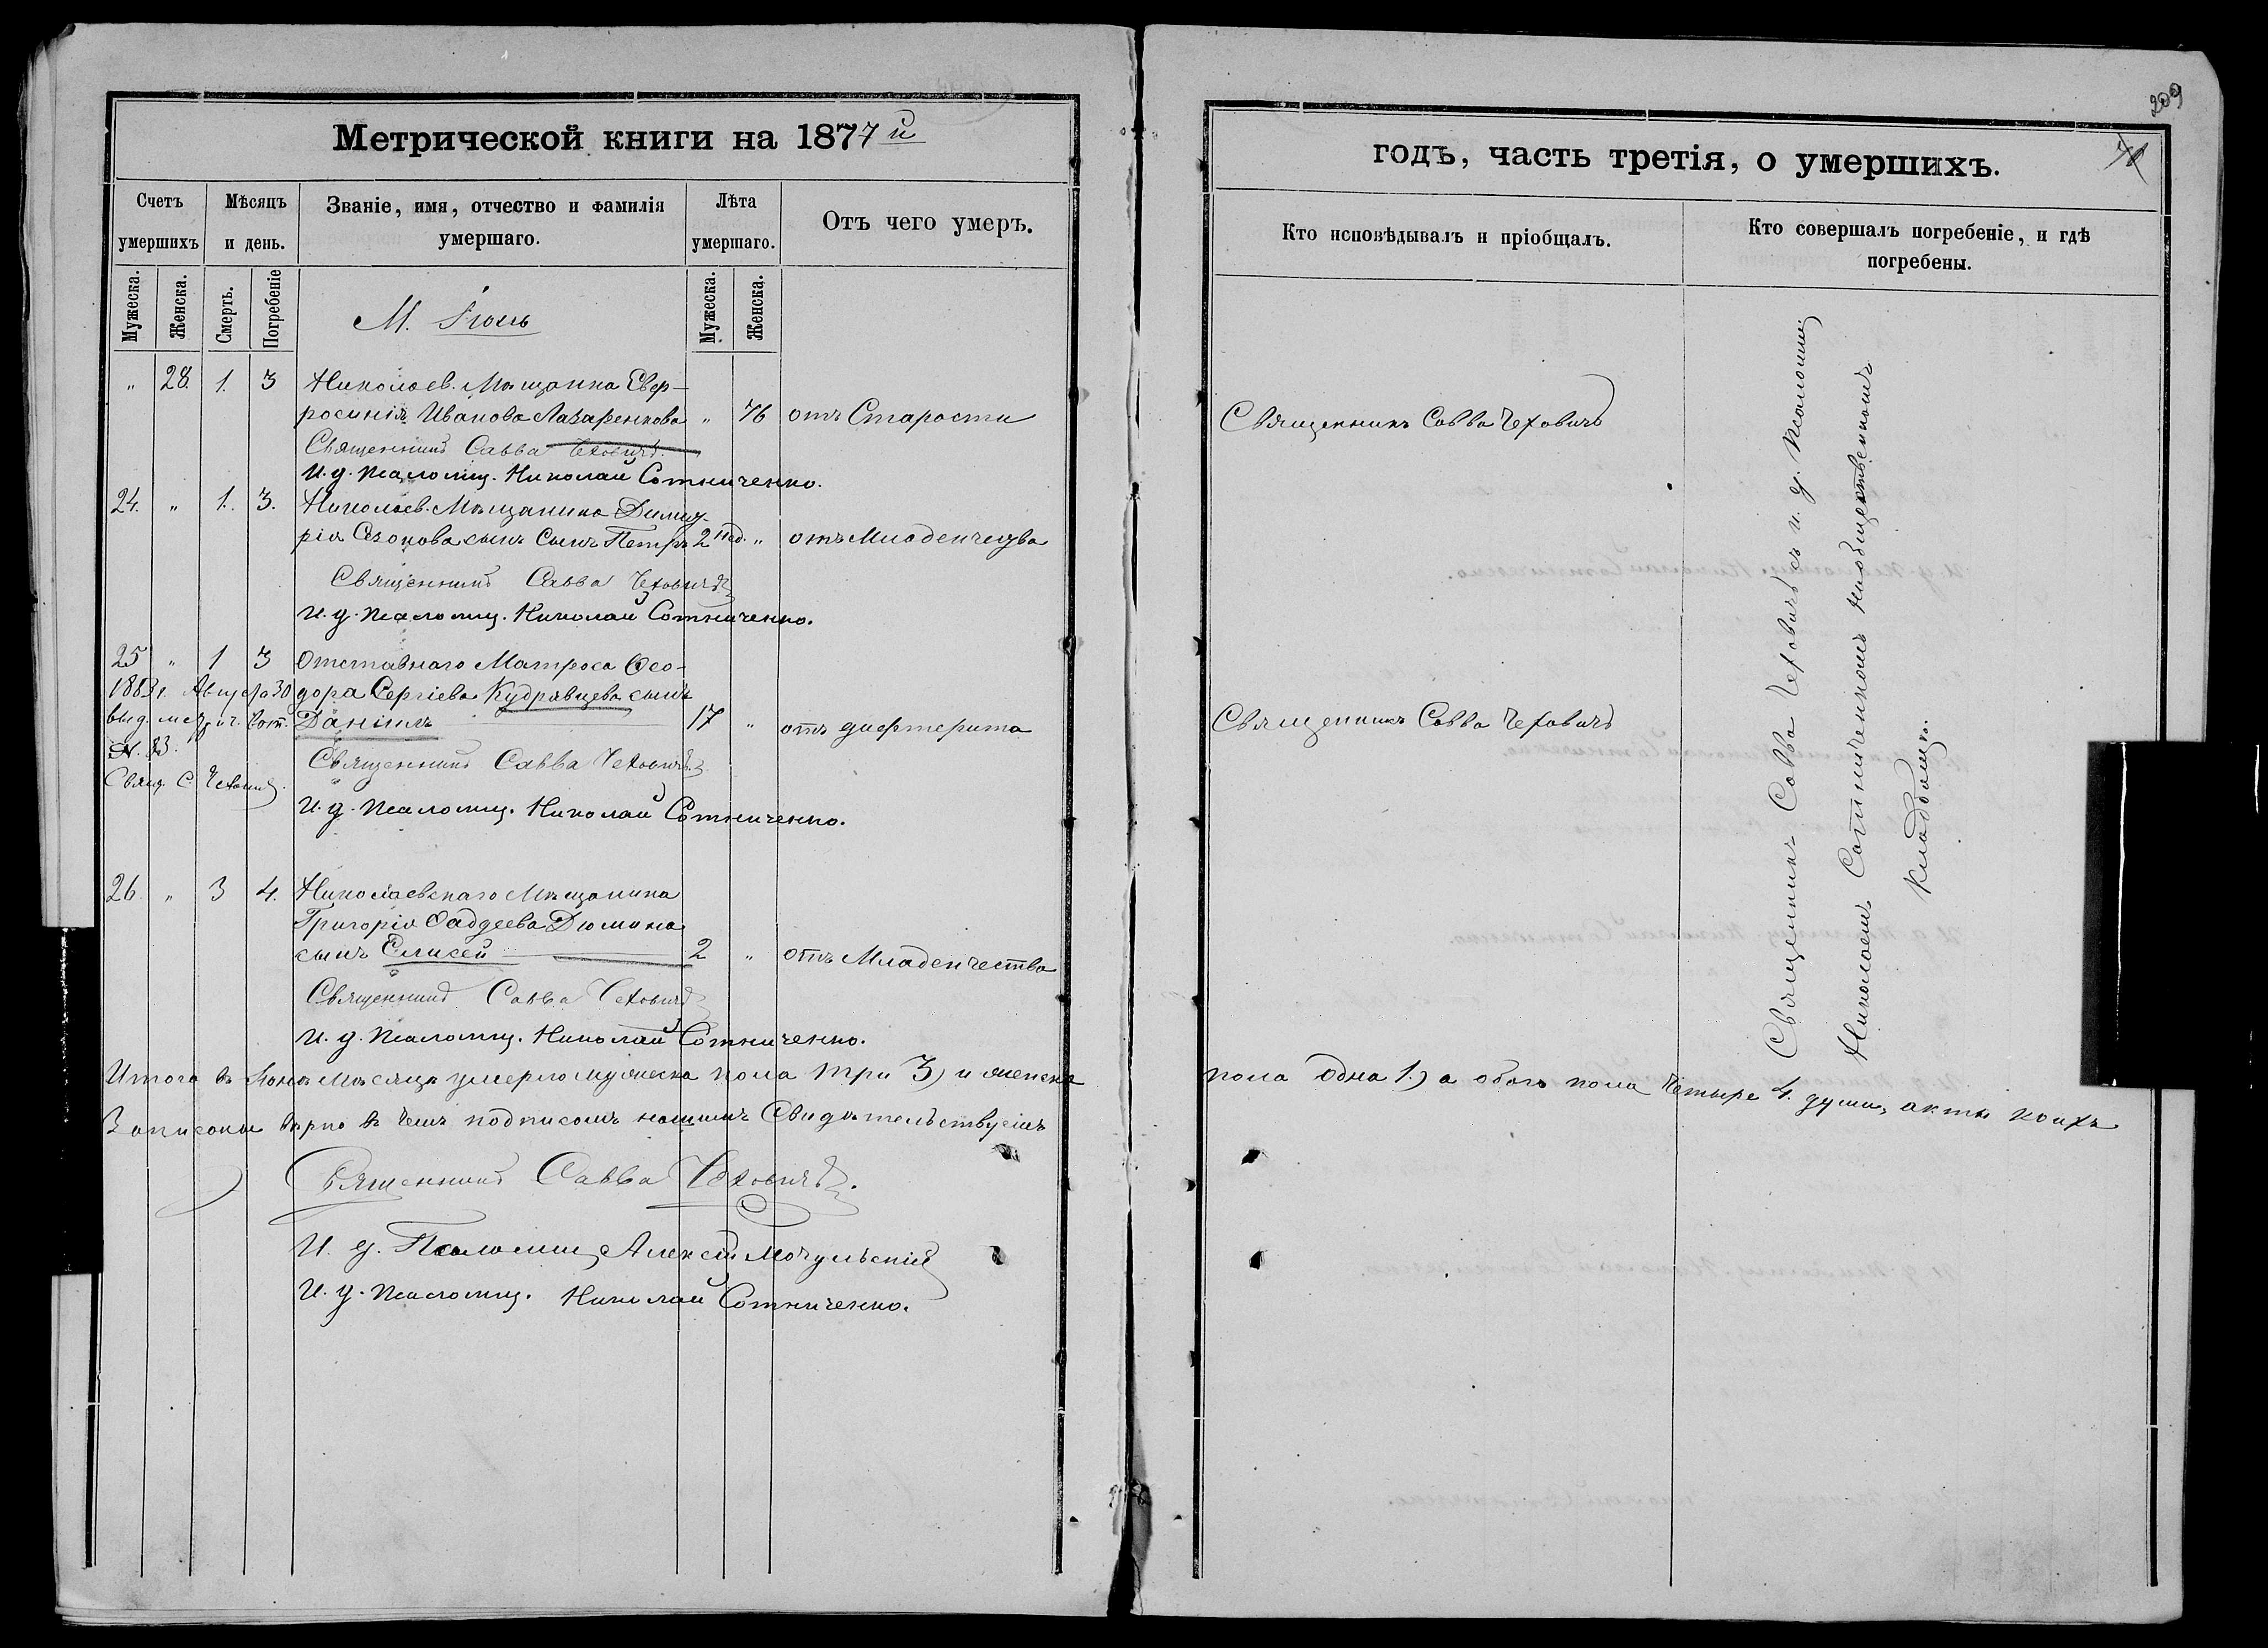 209
Метрической книги на 1877 й
годъ, часть третія, о умершихъ.
Счетъ умершихъ
Мѣсяцъ и день.
Званіе, имя, отчество и фамилія умершаго.
Лѣта умершаго.
Отъ чего умеръ.
Кто исповѣдывалъ и пріобщалъ.
Кто совершалъ погребеніе, и гдѣ погребены.
Мужеска.
Женска.
Смерть.
Погребеніе
Мужеска.
Женска.
М. Іюнь
" 28. 1. 3 Николаев. Мѣщанка Евф-
росинія Иванова Лазаренкова " 76 отъ Старости
Священникъ Савва Чеховичъ
Священникъ Савва Чеховичъ
И. д. Псаломщ. Николай Сотниченко.
24. " 1. 3. Николаев. Мѣщанина Дими-
рія Сазонова сынъ Сынъ Петръ 2 нед. " отъ Младенчества
Священникъ Савва Чеховичъ
И. д. Псаломщ. Николай Сотниченко.
25 " 1 3 Отставнаго Матроса Ѳео-
1883 г. Августа 30 дора Сергіева Кудрявцева сынъ
выд. метрич. Даніилъ 17 " отъ дифтерита
Священникъ Савва Чеховичъ
Свящ. С. Чеховичъ
Священникъ Савва Чеховичъ
И. д. Псаломщ. Николай Сотниченко.
26. " 3 4. Николаевскаго Мѣщанина
Григорія Фаддеева Дюмина
сынъ Елисей 2 " отъ Младенчества
Священникъ Савва Чеховичъ
И. д. Псаломщ. Николай Сотниченко.
Священникъ Савва Чеховичъ съ и. д. Псаломщ.
Николаемъ Сотниченкомъ на общественномъ
кладбищѣ.
Итого въ Іюнѣ мѣсяцѣ умерло мужеска пола три 3) и женска пола одна 1.) а обоего пола четыре 4. души, акты коихъ
Записаны вѣрно въ чемъ подписомъ нашимъ Свидѣтельствуемъ
Священникъ Савва Чеховичъ.
И. д. Псаломщ. Алексѣй Мочульскій
И. д. Псаломщ. Николай Сотниченко.